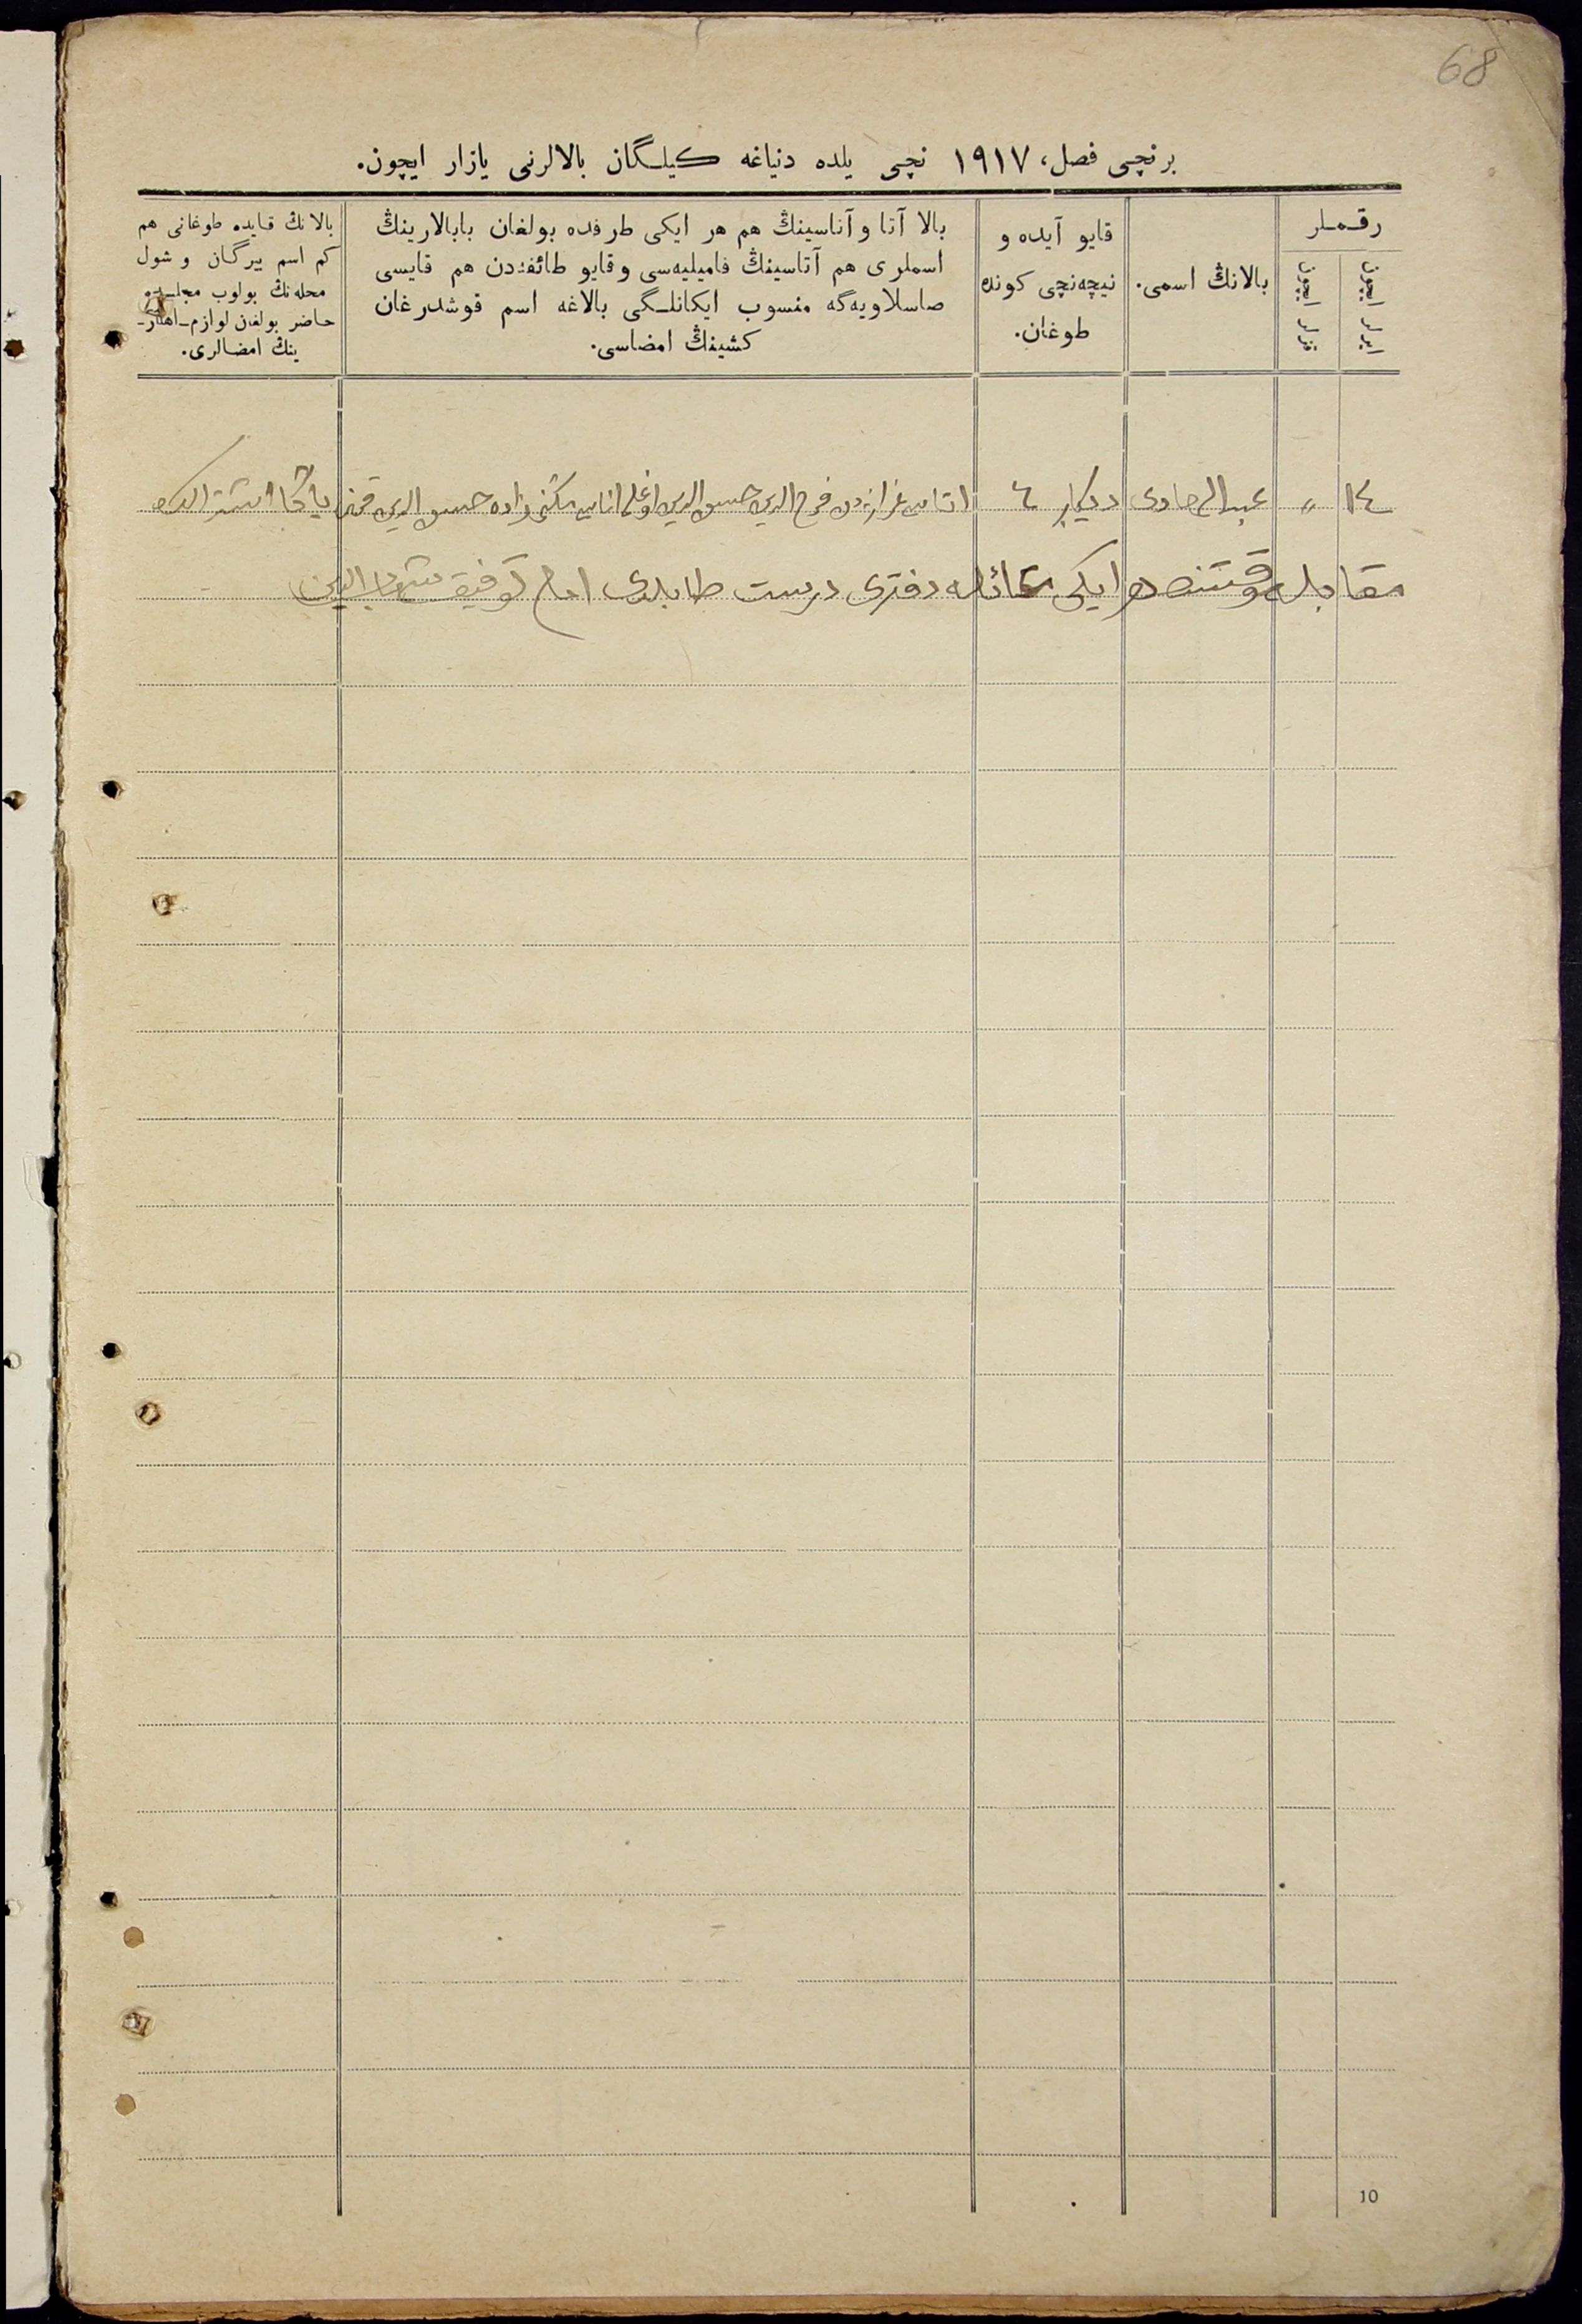 68
برنچی فصل، ١٩١٧ نچی یلده دنیاغه کیلـگان بالالرنی یازار ایچون.
رقـمـلر
ایرلر ایچون
قزلر ایچون
بالانڭ اسمی.
قایو آیده و
نیچه‌نچی کونده
طوغان.
بالا آتا و آناسینڭ هم هر ایکی طرفده بولغان بابالارینڭ
اسملری هم آتاسینڭ فامیلیه‌سی و قایو طائفه‌دن هم قایسی
صاسلاویه‌گه منسوب ایکانلـگی بالاغه اسم قوشدرغان
کشینڭ امضاسی.
بالانڭ قایده طوغانی هم
کم اسم بیرگـان و شول
محله‌نڭ بولوب مجلـسده
حاضر بولغان لوازم ـ اهللر ـ
ینڭ امضالری.
١٤ " عبدالهادی دیکابر ٤ اتاسی دن حسن الدین اوغلی اناسی زاده حسن الدین قزی یاڭا
مقابله وقتنده هر ایکی دفتری درست طابلدی امام توفیق
10